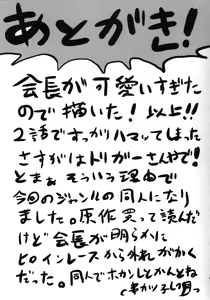 あとがき!
会長が可愛いすぎた
ので描いた!以上!!
2話ですっかりハマッてしまった
さすがはトリガーさんやで!
とまぁそういう理由で
今回のジャンルの同人になり
ました。原作買って読んだ
けど会長が明らかに
ヒロインレースから外れがかく
だった。同人でホカンしとかんとね